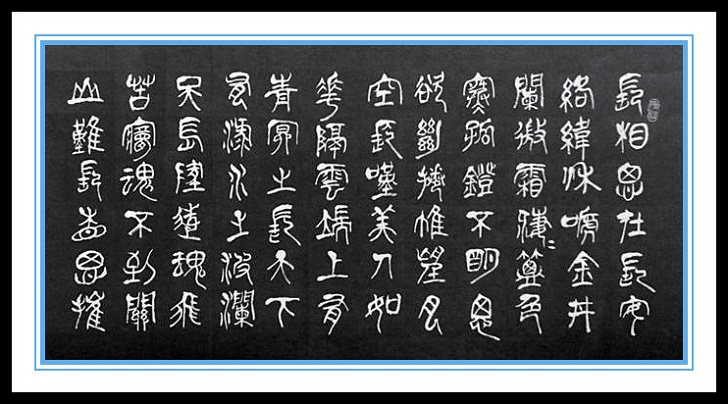 長相思在長安
絡緯秋啼金井
闌微霜淒〻簟色
寒孤鐙不明思
欲絕捲帷望月
空長嘆美人如
華隔雲端上有
青冥之長天下
有淥水之波瀾
天長路遠魂飛
苦夢魂不到關
山難長相思摧